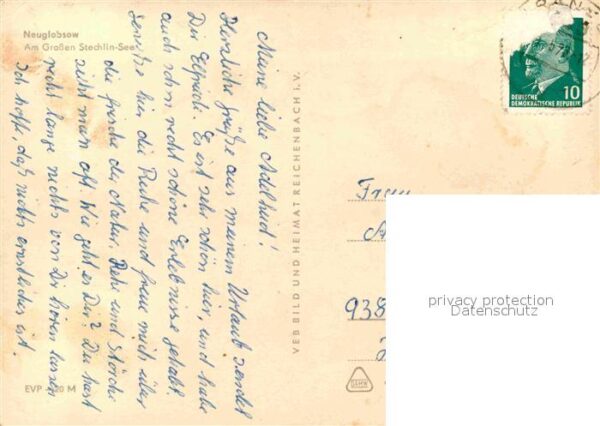 Neuglobsow
Am Großen Stechlin-See
Meine liebe Adelheid!
Herzliche Grüße aus meinem Urlaub sendet
Dir Elfriede. Es ist sehr schön hier, und habe
auch schon recht schöne Erlebnisse gehabt.
Genieße hier die Ruhe und freue mich über
die frische der Natur. Rehe und Störche
sieht man oft. Wie geht es Dir? Du hast
recht lange nichts von Dir hören lassen
Ich hoffe, daß nichts ernstliches ist.
EVP -,20 M
VEB BILD UND HEIMAT REICHENBACH I. V.
10
DEUTSCHE
DEMOKRATISCHE REPUBLIK
Frau
938
privacy protection
Datenschutz